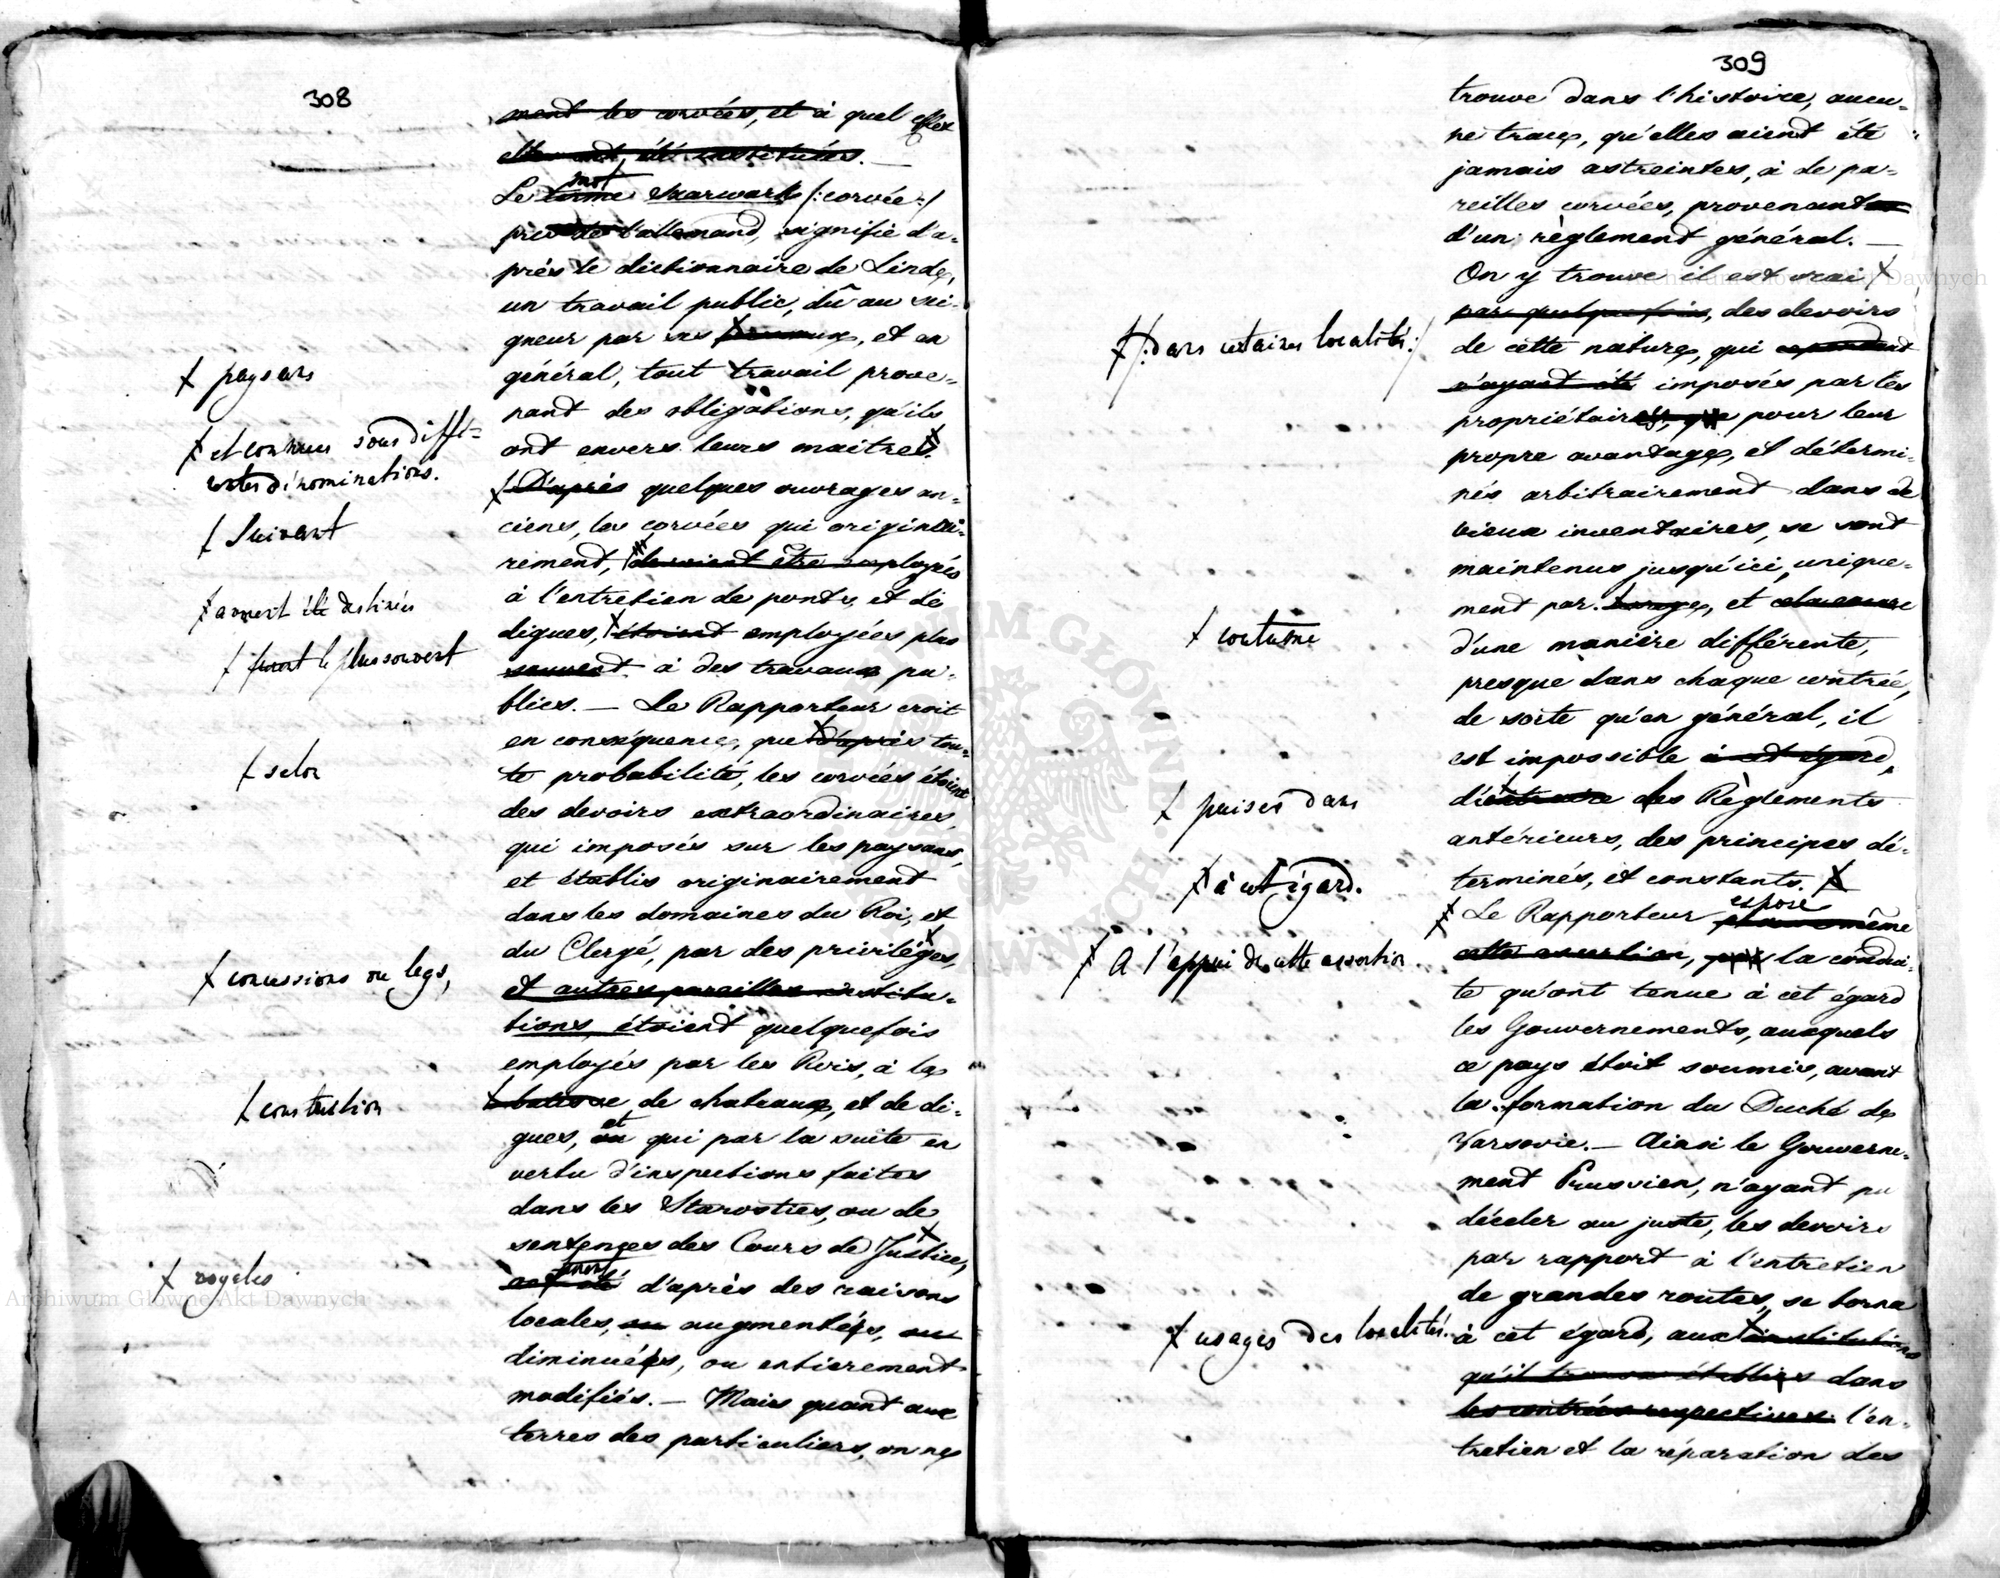 308
ment les corvées, et à quel effet
elles ont été instituées. —
mot
Le terme szarwark /: corvée :/
pris de l'allemand, signifie d'a-
près le dictionnaire de Linde,
un travail public, dû au sei-
gneur par ses , et en
général, tout travail prove-
nant des obligations, qu'ils
ont envers leurs maitres.
D'après quelques ouvrages an-
ciens, les corvées qui originai-
rement, devoient être employés
à l'entretien de ponts, et de
digues, étoient employées plus
souvent à des travaux pu-
blics. — Le Rapporteur croit
en conséquence, que d'après tou-
te probabilité, les corvées étoient
des devoirs extraordinaires,
qui imposés sur les paysans,
et établis originairement
dans les domaines du Roi, et
du Clergé, par des privilèges,
et autres pareilles institu-
tions, étoient quelquefois
employés par les Rois, à la
batisse de chateaux, et de di-
et
gues, ou qui par la suite en
vertu d'inspections faites
dans les Starosties, ou de
sentences des Cours de Justice,
furent
ont été d'après des raisons
locales, ou augmentées, ou
diminuées, ou entierement
modifiés. — Mais quant aux
terres des particuliers, on ne
paysans
et connues sous diffé-
rentes dénominations.
Suivant
avoient été destinées
furent le plus souvent
selon
concessions ou legs,
construction
royales
309
trouve dans l'histoire, aucu-
ne trace, qu'elles aient été
jamais astreintes, à de pa-
reilles corvées, provenantes
d'un règlement général. —
On y trouve il est vrai
par quelque fois, des devoirs
de cette nature, qui cependant
n'ayant été imposés par les
propriétaires, que pour leur
propre avantage, et détermi-
nés arbitrairement dans de
vieux inventaires, se sont
maintenus jusqu'ici, unique-
ment par usage, et cela encore
d'une manière différente,
presque dans chaque contrée,
de sorte qu'en général, il
est impossible à cet égard,
d'extraire des Règlements
antérieurs, des principes dé-
terminés, et constants.
exposé
Le Rapporteur même
cette assertion, la condui-
te qu'ont tenue à cet égard
les Gouvernements, auxquels
ce pays étoit soumis, avant
la formation du Duché de
Varsovie. — Ainsi le Gouverne-
ment Prussien, n'ayant pu
déceler au juste, les devoirs
par rapport à l'entretien
de grandes routes, se borna
à cet égard, aux institutions
qu'il trouva établies dans
les contrées respectives. l'en-
tretien et la réparation des
/: dans certaines localités :/
coutume
puiser dans
à cet égard.
A l'appui de cette assertion
usages des localités.
Archiwum Główne Akt Dawnych